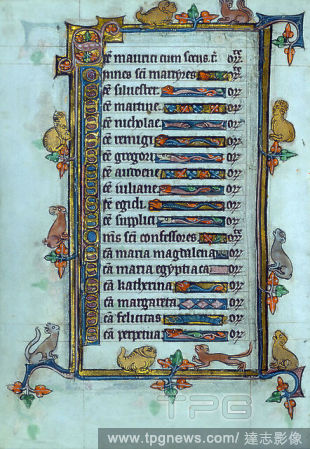 Sc̄e maurici cum socus. c̄. orͬͤ
Omnes sc̄i martyres orͬͤ
Sc̄e siluester or
Sc̄e martine or
Sc̄e nicholae or
Sc̄e remigi or
Sc̄e gregori or
Sc̄e audoene or
Sc̄e iuliane or
Sc̄e egidi or
Sc̄e supplici or
Om̄s sc̄i confessores orͬͤ
Sc̄a maria magdalena or
Sc̄a maria egyptiaca or
Sc̄a katherina or
Sc̄a margareta or
Sc̄a felicitas or
Sc̄a perpetua or
TPG
www.tpgnews.com/達志影像